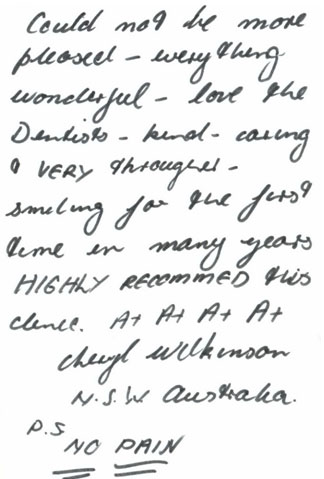 Could not be more
pleased - everything
wonderful - love the
Dentists - kind - caring
& VERY througher -
smiling for the first
time in many years
HIGHLY RECOMMED this
clence. A+ A+ A+ A+
Cheryl Wilkinson
N.S.W Australia.
P.S
NO PAIN